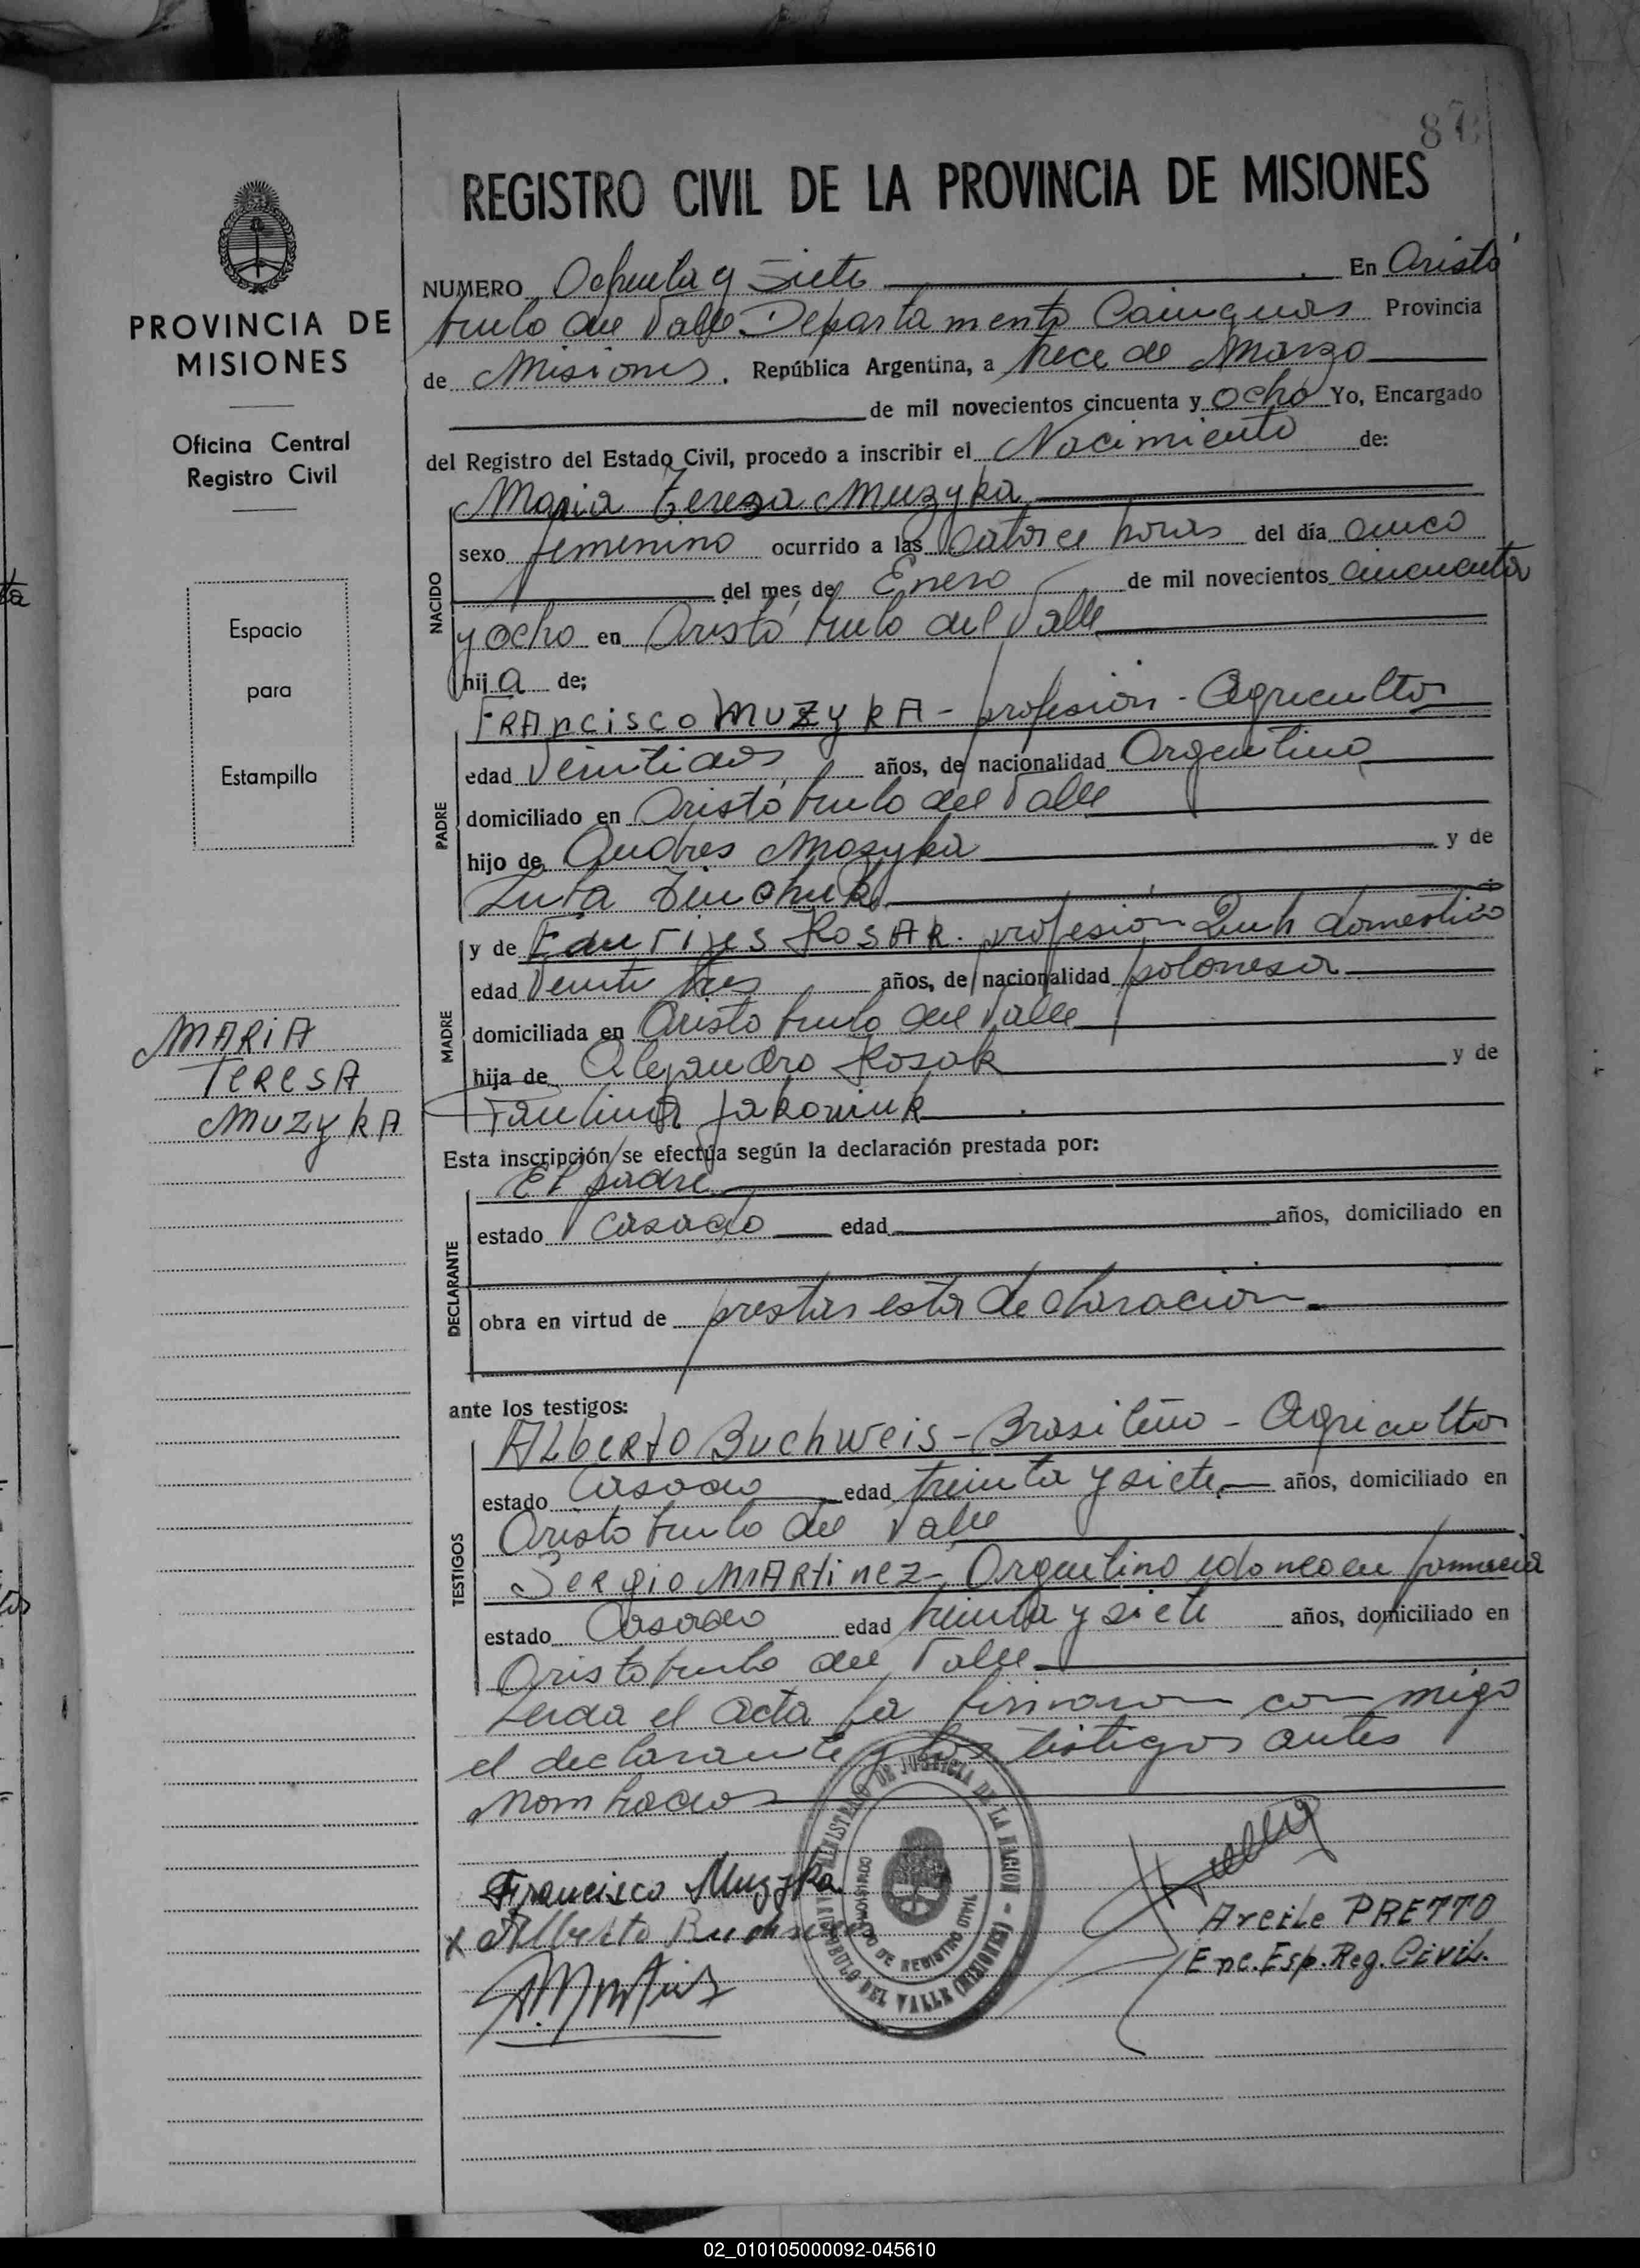 87
REGISTRO CIVIL DE LA PROVINCIA DE MISIONES
PROVINCIA DE
MISIONES
Oficina Central
Registro Civil
Espacio
para
Estampilla
MARIA
TERESA
MUZYKA
NUMERO Ochenta y Siete En Aristó
bulo del Valle Departamento Cainguas Provincia
de Misiones, República Argentina, a trece de Marzo
de mil novecientos cincuenta y ocho Yo, Encargado
del Registro del Estado Civil, procedo a inscribir el Nacimiento de:
NACIDO
Maria Teresa Muzyka
sexo femenino ocurrido a las catorce horas del día cinco
del mes de Enero de mil novecientos cincuenta
y ocho en Aristóbulo del Valle
hija de;
PADRE
FRANCISCO MUZYKA - profesión - Agricultor
edad Veintidos años, de nacionalidad Argentino
domiciliado en Aristóbulo del Valle
hijo de Andres Mozyka y de
MADRE
y de KOSAK. profesión domestico
edad Veinte tres años, de nacionalidad polonesa
domiciliada en Aristobulo del Valle
hija de Alejandro Kosak y de
Paulina Jakoniuk
Esta inscripción se efectúa según la declaración prestada por:
DECLARANTE
El padre
estado casado edad años, domiciliado en
obra en virtud de prestar esta declaración
ante los testigos:
TESTIGOS
ALBERTO Buchweis - Brasileño - Agricultor
estado Casado edad treinta y siete años, domiciliado en
Aristobulo del Valle
SERGIO MARTINEZ - Argentino idoneo en farmacia
estado Casado edad treinta y siete años, domiciliado en
Aristobulo del Valle
Leida el acta la firmaron con migo
el declarante y los testigos antes
nombrados
MINISTERIO DE JUSTICIA DE LA NACION - ARISTOBULO DEL VALLE (MISIONES)
DE REGISTRO CIVIL
Francisco Muzyka
x Alberto
PRETTO
Enc. Esp. Reg. Civil.
02_010105000092-045610